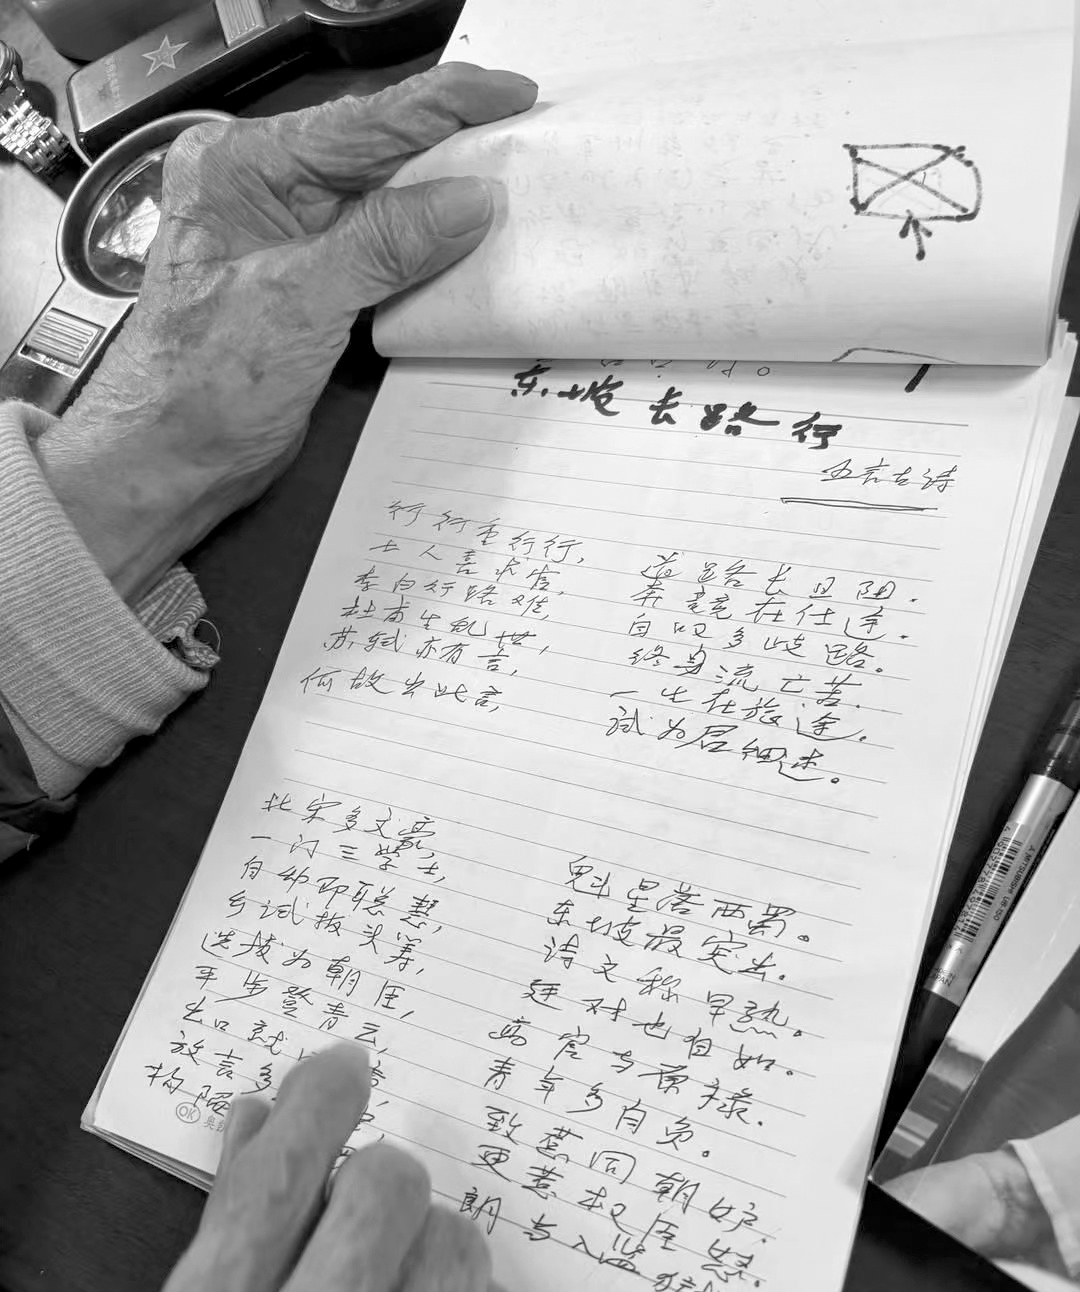 东坡长路行
五言古诗
行行重行行， 道路长且阻．
士人喜求官， 奔竞在仕途．
李白行路难， 自叹多歧路。
杜甫生乱世， 终身流亡苦．
苏轼亦有言， 一生在旅途．
何故出此言， 试为君细述。
北宋多文豪， 魁星落西蜀。
一门三学士， 东坡最突出．
自幼即聪慧， 诗文称早熟。
乡试拔头筹， 廷对也自如．
选拔为朝臣， 高官与厚禄．
平步登青云， 青年多自负。
出口就 致惹同朝妒．
放言多 更惹权臣怒．
构陷 朗当入监狱
OK 奥
MITSUBISHI UB-150
JAPAN